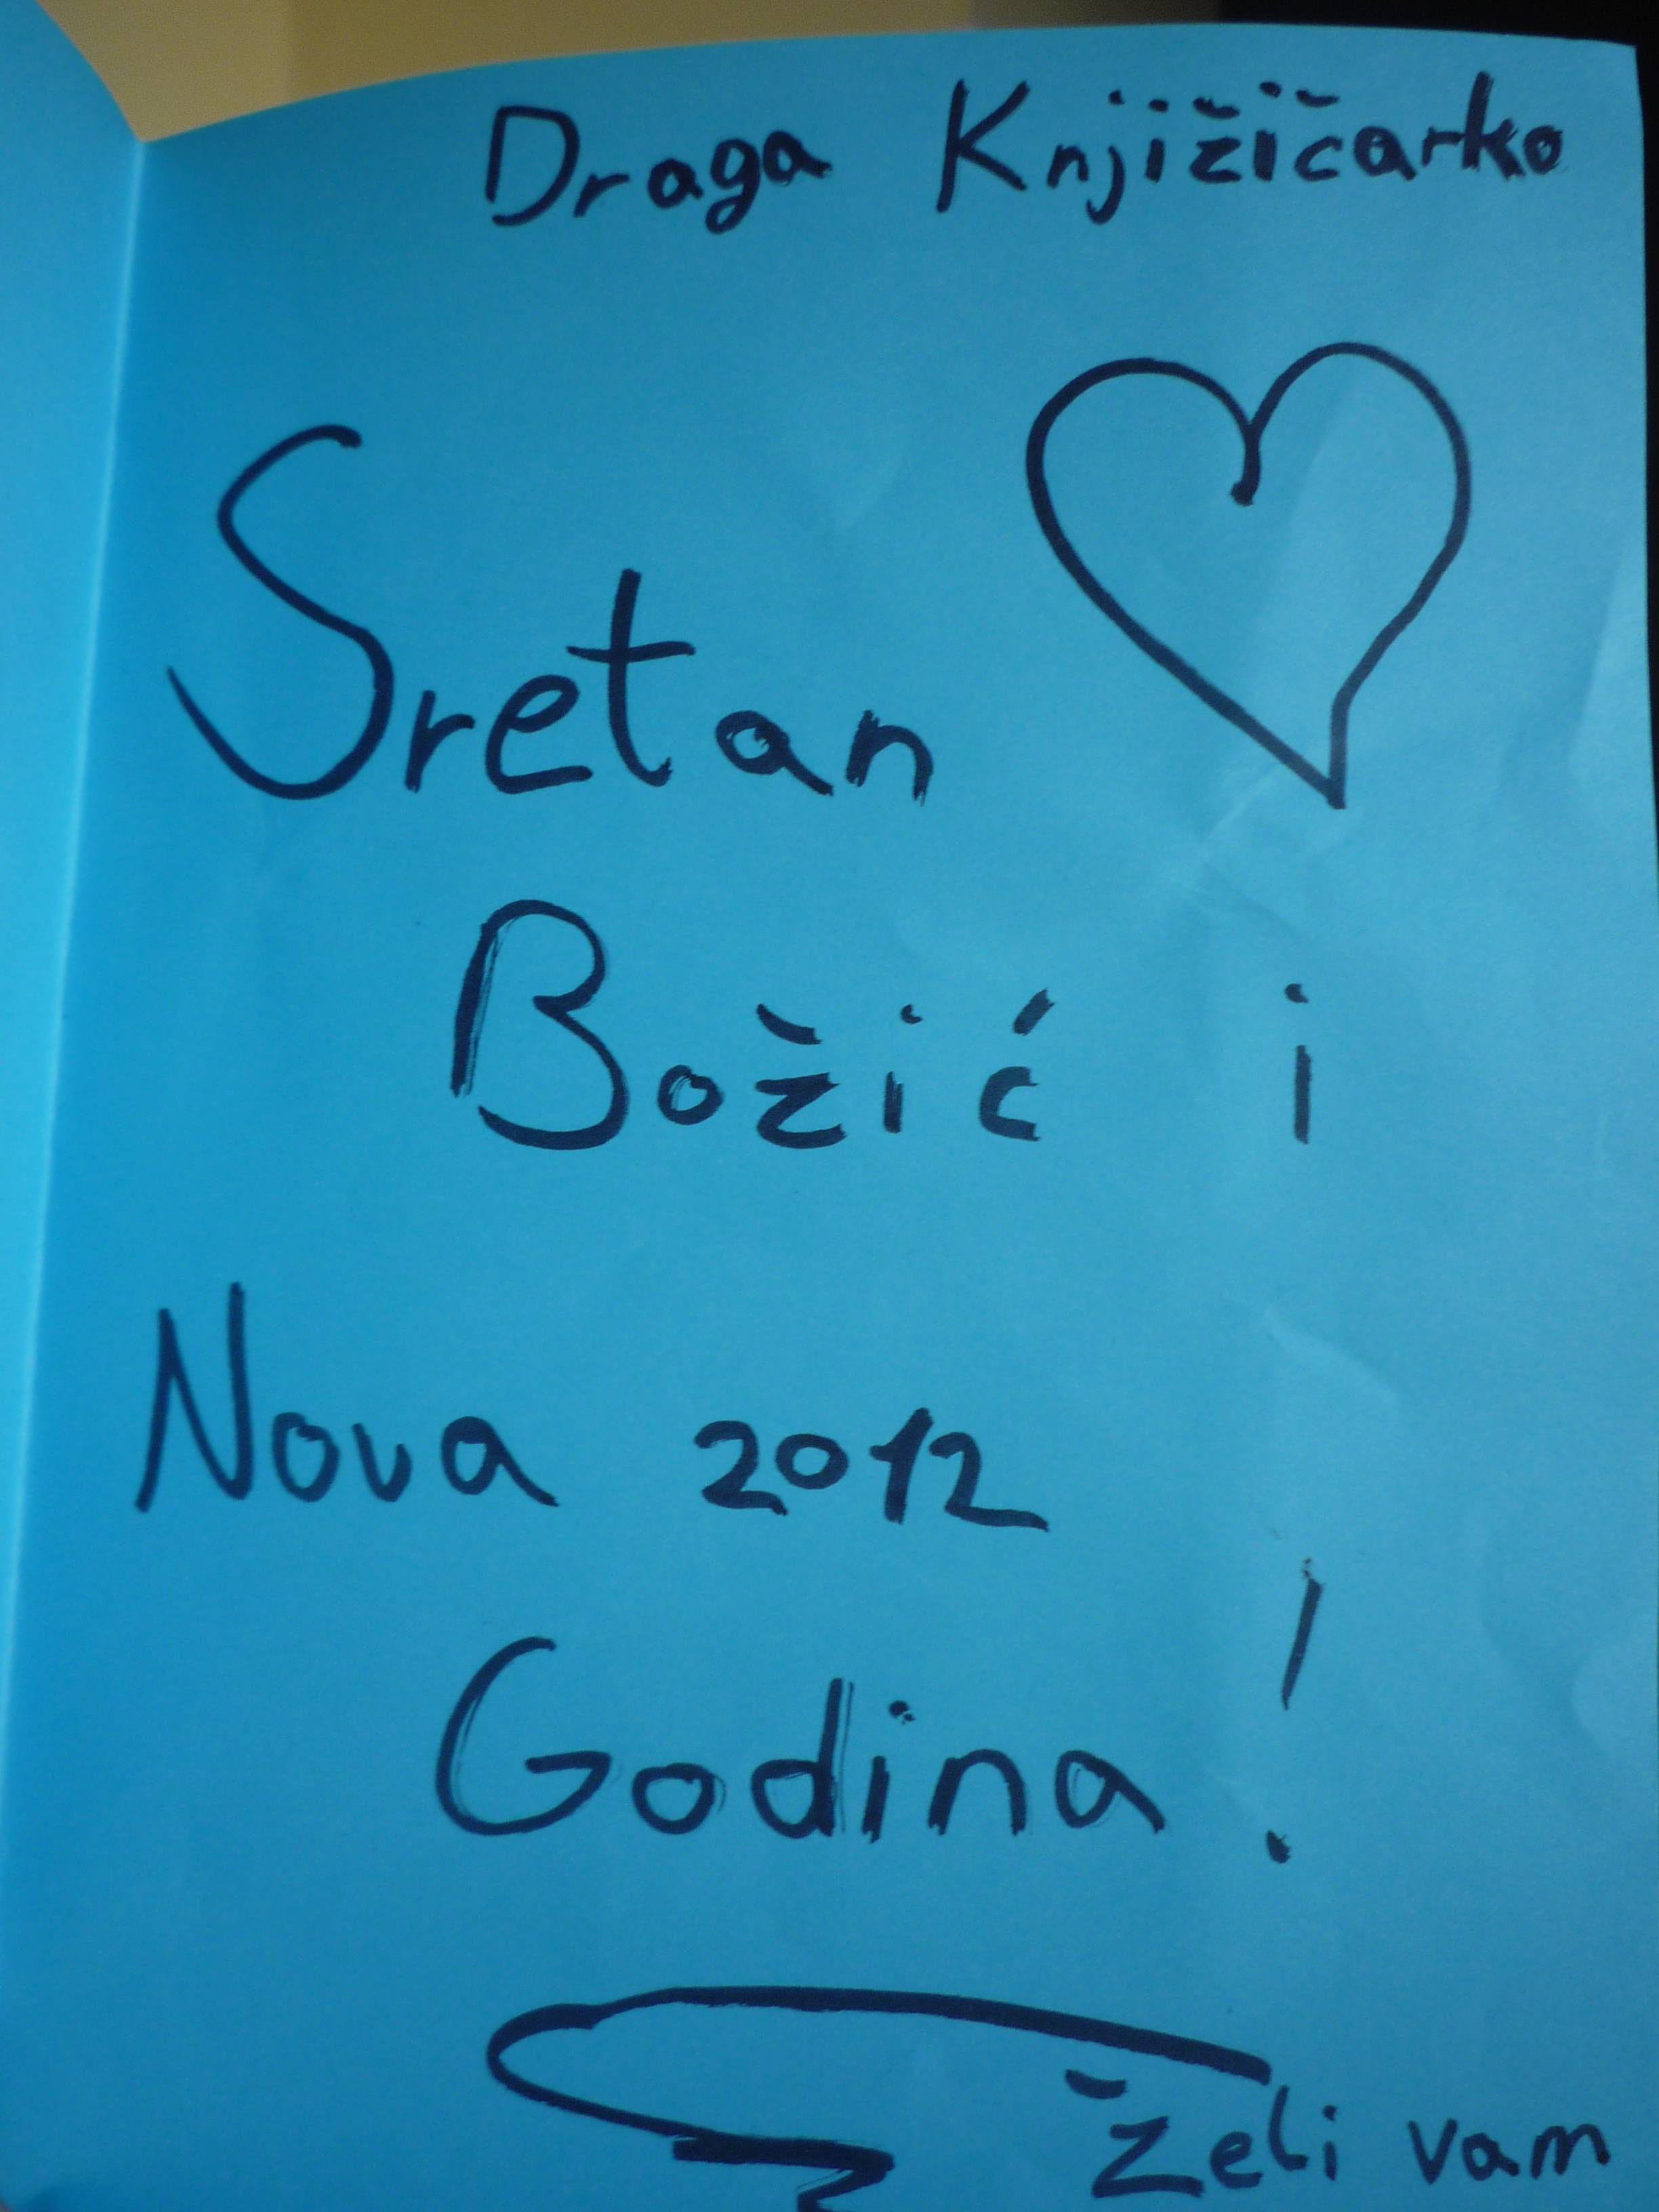 Draga Knjižičarko
Sretan
Božić i
Nova 2012
Godina!
želi vam